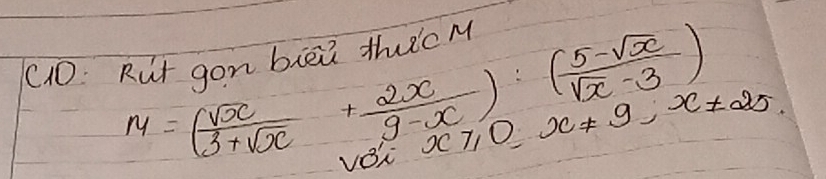 C10: Rút gọn biểu thức M
M = (√x / (3 + √x) + 2x / (9 - x)) : ((5 - √x) / (√x - 3))
với x ≥ 0, x ≠ 9; x ≠ 25.